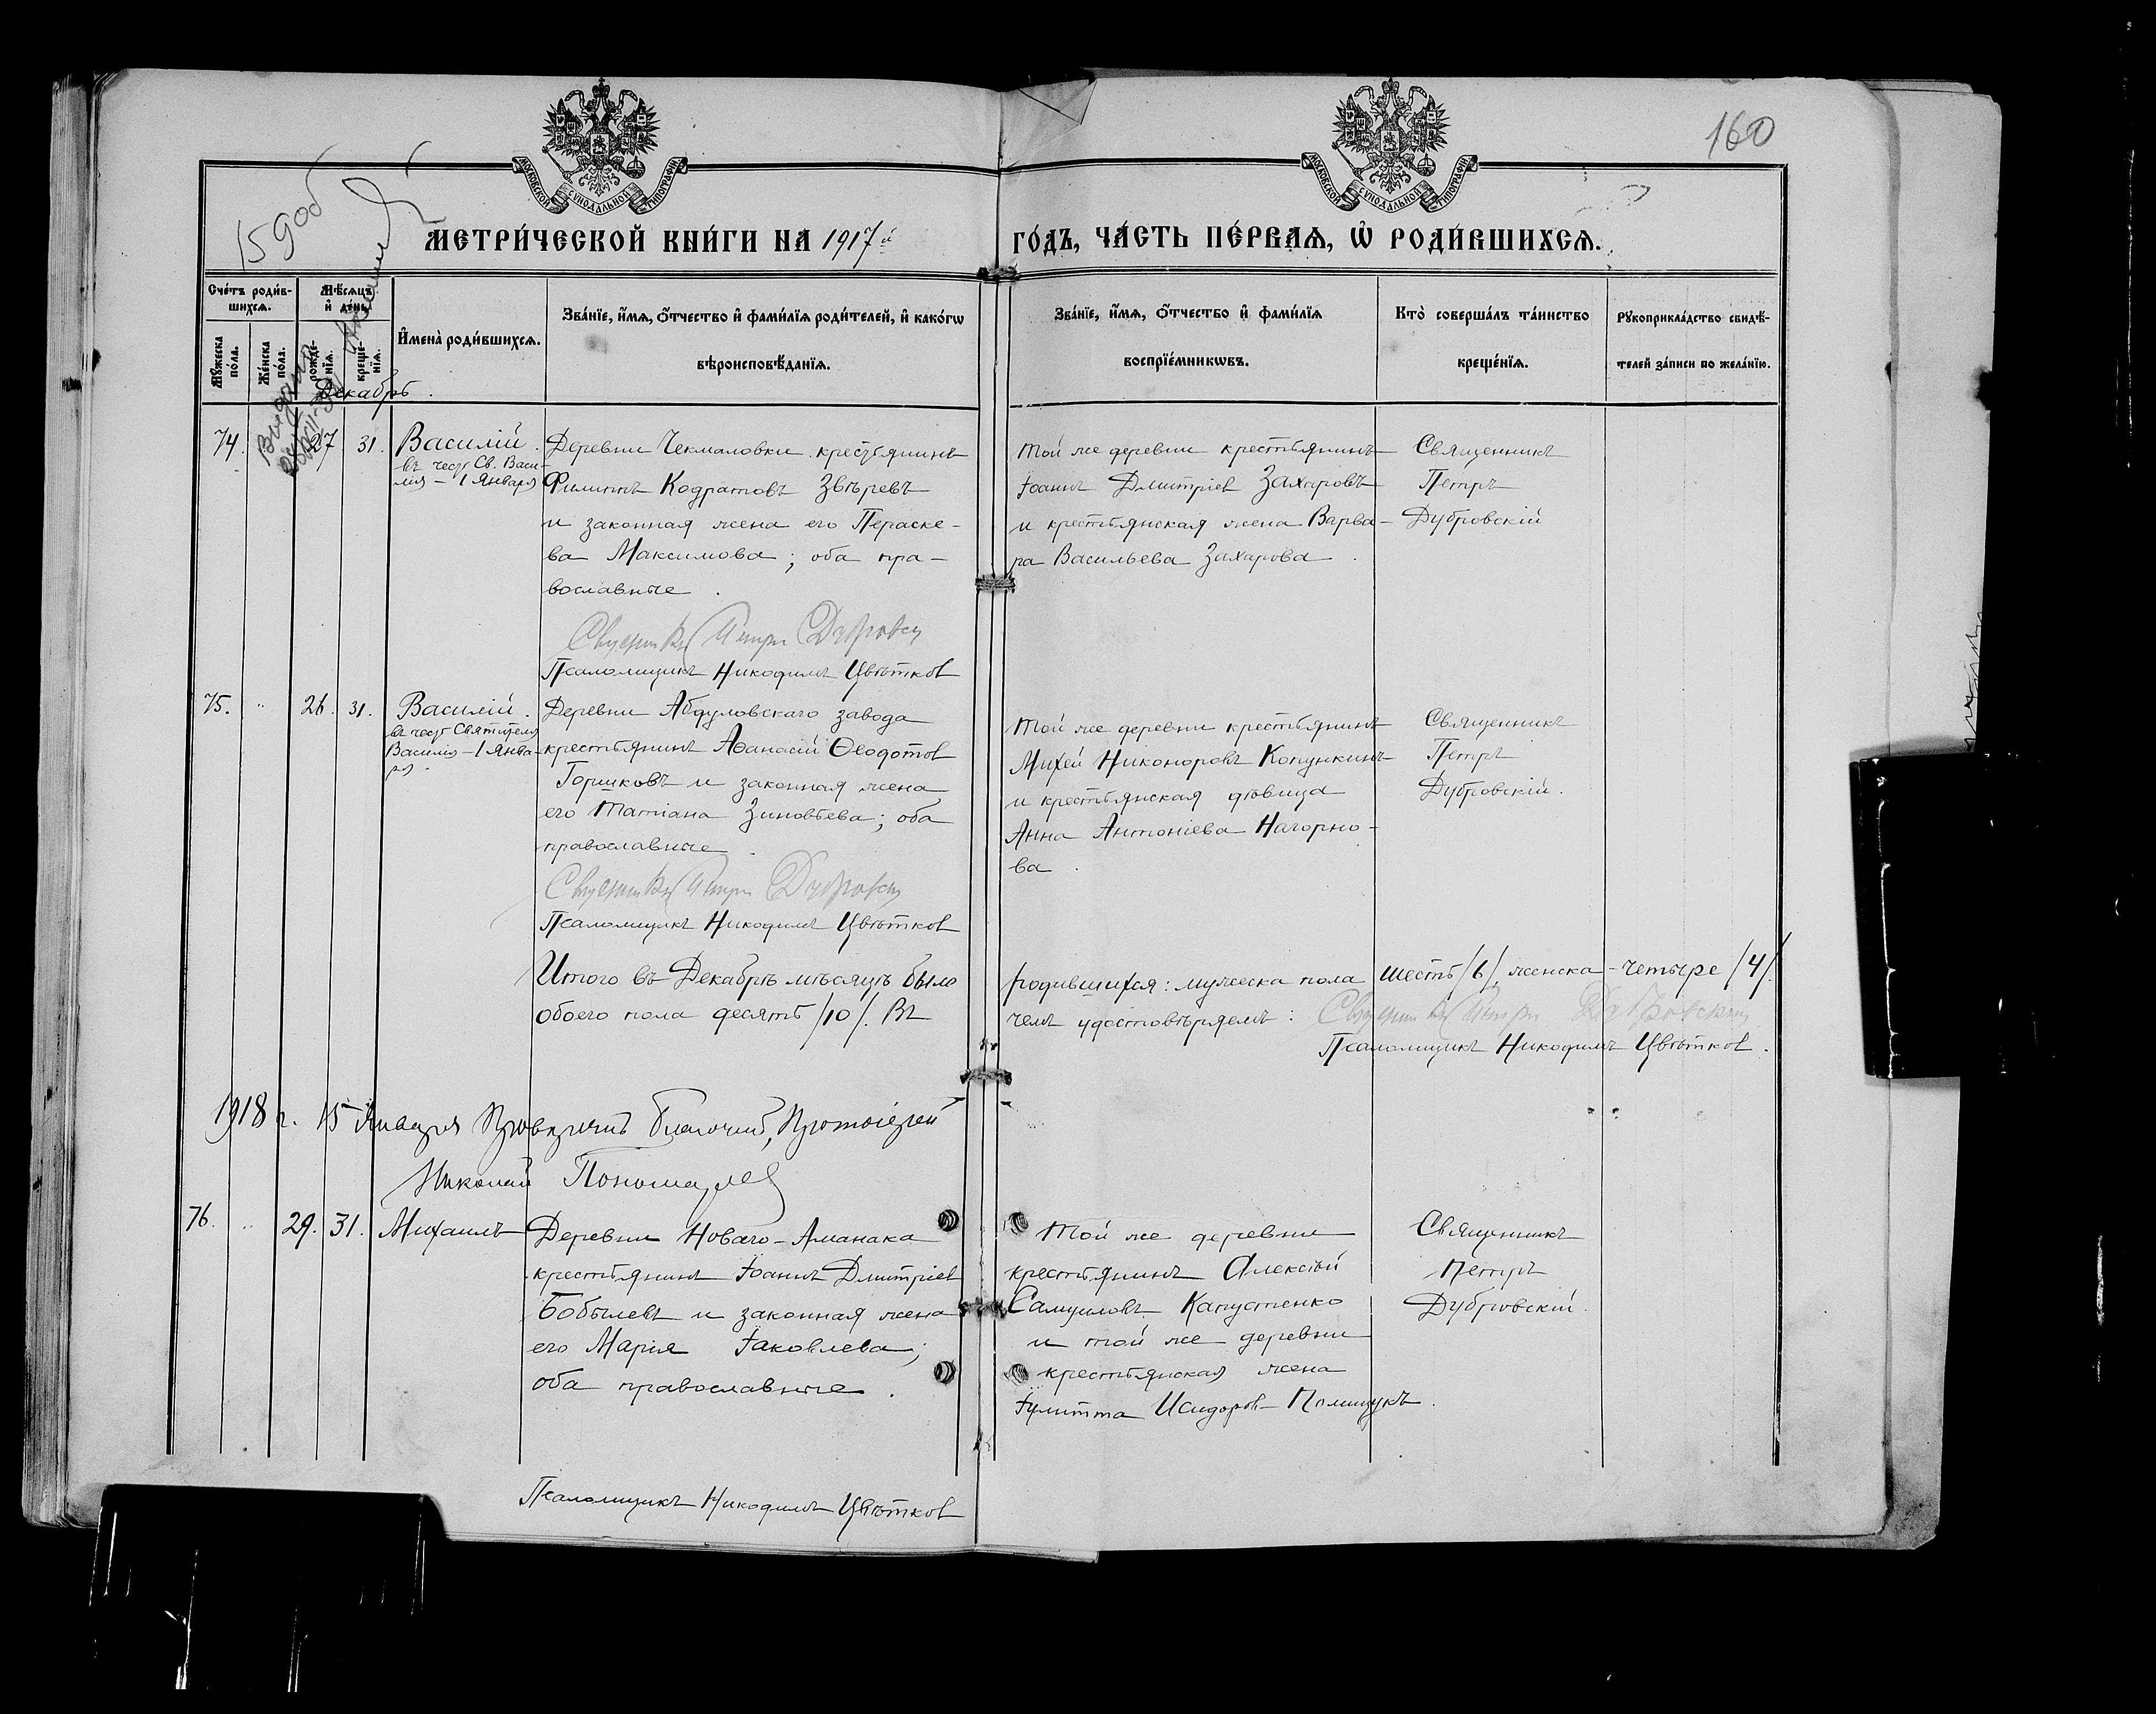 160
МОСКОВСКОЙ СѴНОДАЛЬНОЙ ТИПОГРАФІИ
МОСКОВСКОЙ СѴНОДАЛЬНОЙ ТИПОГРАФІИ
МЕТРИ́ЧЕСКОЙ КНИ́ГИ НА 1917й
ГО́ДЪ, ЧА́СТЬ ПЕ́РВАѦ, Ѡ РОДИ́ВШИХСѦ.
Сче́тъ роди́в-
шихсѧ.
Мꙋ́жеска по́ла.
Же́нска по́ла.
Мѣ́сѧцъ
и҆ де́нь
рожде-
нїѧ.
креще-
нїѧ.
И҆мена̀ роди́вшихсѧ.
Зва́нїе, и҆́мѧ, ѻ҆́тчество и҆ фами́лїѧ роди́телей, и҆ како́гѡ
вѣроисповѣ́данїѧ.
Зва́нїе, и҆́мѧ, ѻ҆́тчество и҆ фами́лїѧ
воспрїе́мникѡвъ.
Кто̀ соверша́лъ та́инство
креще́нїѧ.
Рꙋкоприкла́дство свидѣ́-
телей за́писи по жела́нїю.
Декабрь.
74. 27 31. Василій.
въ чест Св. Васи-
лія – 1 Января
Деревни Чекмаловки крестьянинъ
Филиппъ Кодратовъ Звѣревъ
и законная жена его Пераске-
ва Максимова; оба пра-
вославные.
Псаломщикъ Никодимъ Цвѣтков
Той же деревни крестьянинъ
Іоаннъ Дмитріев Захаровъ
и крестьянская жена Варва-
ра Васильева Захарова.
Священникъ
Петръ
Дубровскій
75. " 26. 31. Василій.
въ чест Святителя
Василія – 1 Янва-
ря.
Деревни Абдуловскаго завода
крестьянинъ Аѳанасій Ѳеодотов
Горшковъ и законная жена
его Татіана Зиновьева; оба
православные.
Псаломщикъ Никодимъ Цвѣтков
Той же деревни крестьянинъ
Михей Никоноровъ Копункинъ
и крестьянская дѣвица
Анна Антоніева Нагорно-
ва.
Священникъ
Петръ
Дубровскій.
Итого въ Декабрѣ мѣсяцѣ было родившихся: мужеска пола шесть /6/, женска – четыре /4/.
обоего пола десять /10/. Въ чемъ удостовѣряемъ:
Псаломщикъ Никодимъ Цвѣтков.
1918 г. 15 Января Протоіерей
Николай Пономарев
76. " 29. 31. Михаилъ
Деревни Новаго-Аманака
крестьянинъ Іоаннъ Дмитріев
Бобылевъ и законная жена
его Марія Іаковлева;
оба православные.
Той же деревни
крестьянинъ Алексѣй
Самуиловъ Капустенко
и той же деревни
крестьянская жена
Іулитта Исидоров– Полищукъ.
Священникъ
Петръ
Дубровскій.
Псаломщикъ Никодимъ Цвѣтков